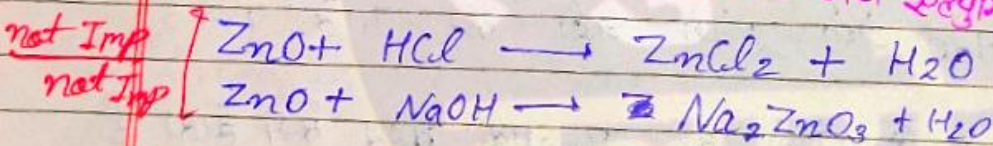 not Imp ZnO + HCl → ZnCl2 + H2O
not Imp ZnO + NaOH → Na2ZnO3 + H2O